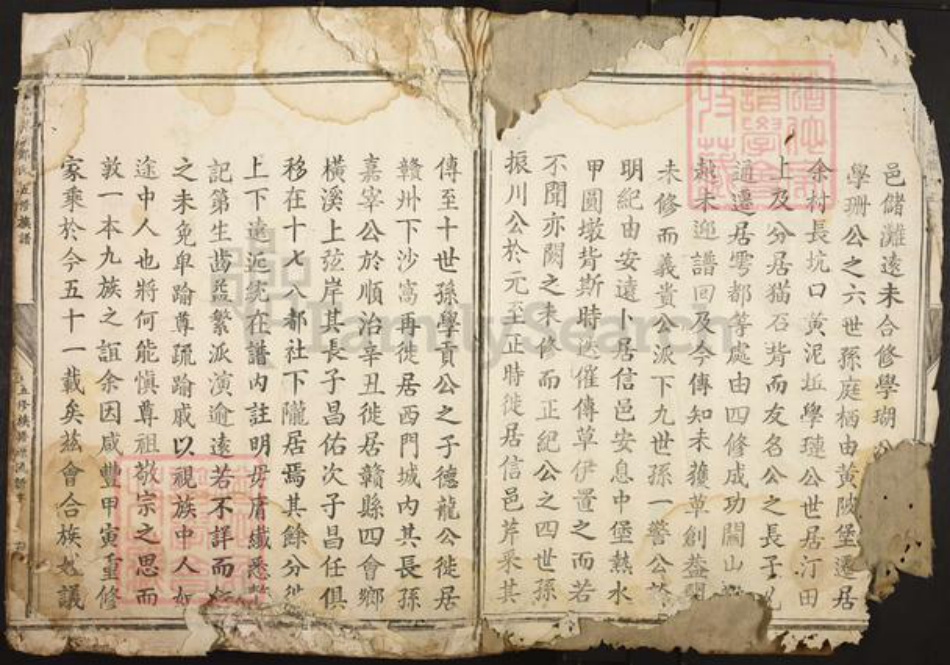 邑儲灘遠未合修學瑚公
學珊公之六世孫庭栖由黃陂堡遷居
余村長坑口黃泥坵學璉公世居汀田
上及分居猫石背而友名公之長子
通遷居雩都等處由四修成功關山
越未迎譜回及今傳知未獲草創
未修而義貴公派下九世孫一警公於
明紀由安遠卜居信邑安息中堡熱水
甲圓墩背斯時迭催傳草伊置之而若
不聞亦闕之未修而正紀公之四世孫
振川公於元至正時徙居信邑芹菓其
傳至十世孫學貢公之子德龍公徙居
贛州下沙窩再徙居西門城内其長孫
嘉宰公於順治辛丑徙居贛縣四會鄉
橫溪上弦岸其長子昌佑次子昌任俱
移在十七八都社下隴居焉其餘分徙
上下遠近統在譜內註明毋庸纖悉
記第生齒益繁派演逾遠若不詳而
之未免卑踰尊疏踰戚以視族中人如
途中人也將何能愼尊祖敬宗之思而
敦一本九族之誼余因咸豐甲寅重修
家乘於今五十一載矣茲會合族
議
氏五修族譜
五修族譜源流
FamilySearch